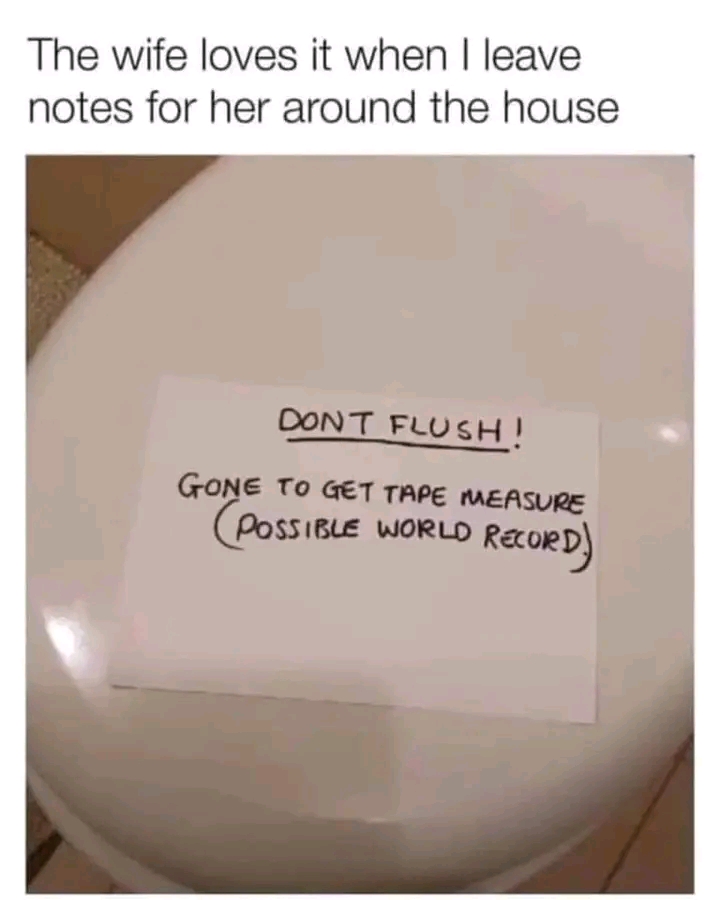 The wife loves it when I leave
notes for her around the house
DONT FLUSH!
GONE TO GET TAPE MEASURE
(POSSIBLE WORLD RECORD)